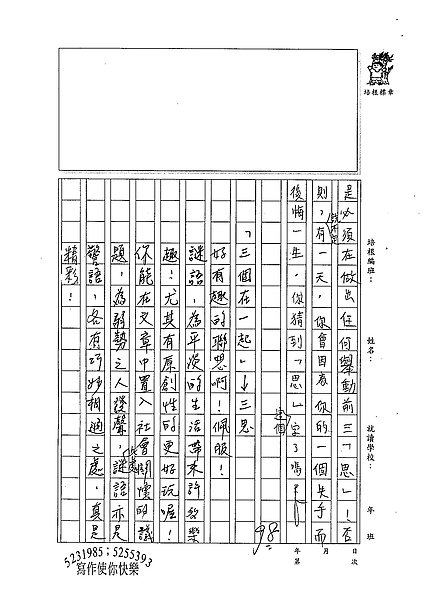 培根標章
培根編班：
姓名：
就讀學校：
年 班
次 第
日 月 年
是必須在做出任何舉動前三「思」！否
則，有一天，你會因為你的一個失手而
說不定
後悔一生，你猜到「思」字了嗎？
這個
98
「三個在一起」→三思
好有趣的聯想啊！佩服！
謎語，為平淡的生活帶來許多樂
趣！尤其有原創性的更好玩喔！
你能在文章中置入社會關懷的議
題，為弱勢之人發聲，謎語亦是
警語，各有巧妙相通之處，真是
精彩！
5231985；5255393
寫作使你快樂